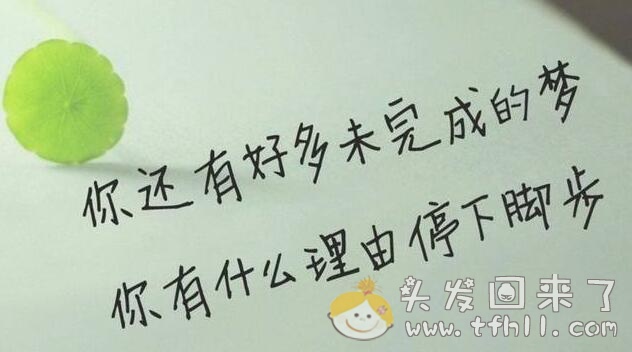 你还有好多未完成的梦
你有什么理由停下脚步
头发回来了
www.tfhll.com